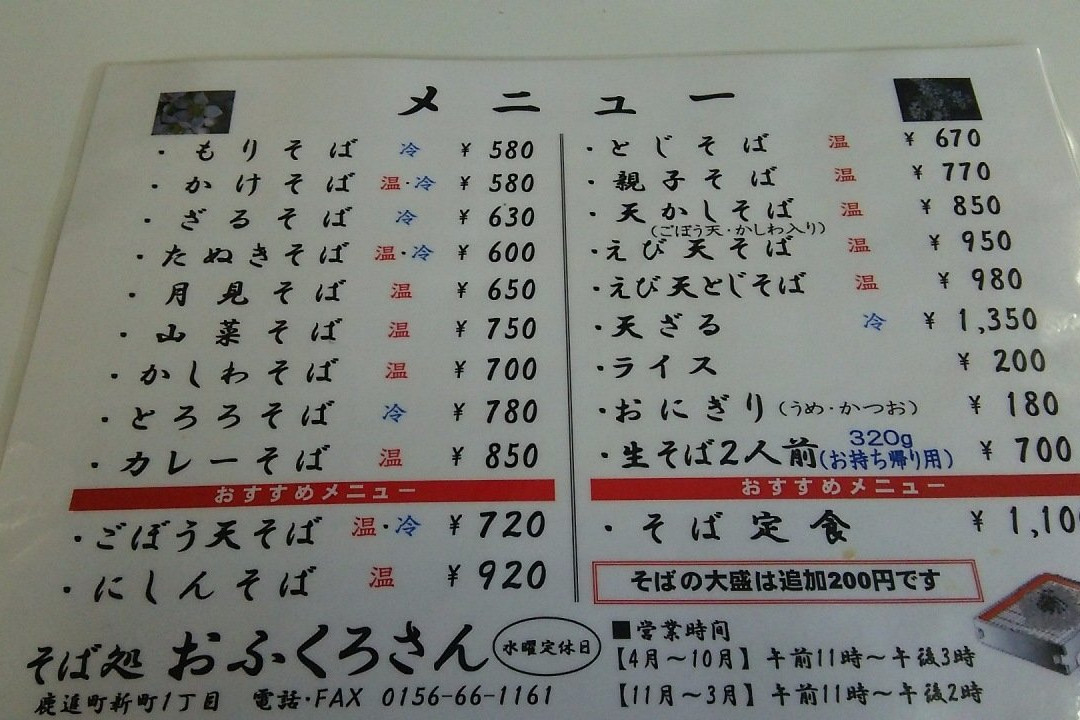 メニュー
・もりそば 冷 ¥ 580
・かけそば 温・冷 ¥ 580
・ざるそば 冷 ¥ 630
・たぬきそば 温・冷 ¥ 600
・月見そば 温 ¥ 650
・山菜そば 温 ¥ 750
・かしわそば 温 ¥ 700
・とろろそば 冷 ¥ 780
・カレーそば 温 ¥ 850
おすすめメニュー
・ごぼう天そば 温・冷 ¥ 720
・にしんそば 温 ¥ 920
・とじそば 温 ¥ 670
・親子そば 温 ¥ 770
・天かしそば 温 ¥ 850
(ごぼう天・かしわ入り)
・えび天そば 温 ¥ 950
・えび天とじそば 温 ¥ 980
・天ざる 冷 ¥ 1,350
・ライス ¥ 200
・おにぎり(うめ・かつお) ¥ 180
・生そば2人前 320g (お持ち帰り用) ¥ 700
おすすめメニュー
・そば定食 ¥
そばの大盛は追加200円です
そば処 おふくろさん 水曜定休日
鹿追町新町1丁目 電話・FAX 0156-66-1161
■営業時間
【4月～10月】午前11時～午後3時
【11月～3月】午前11時～午後2時